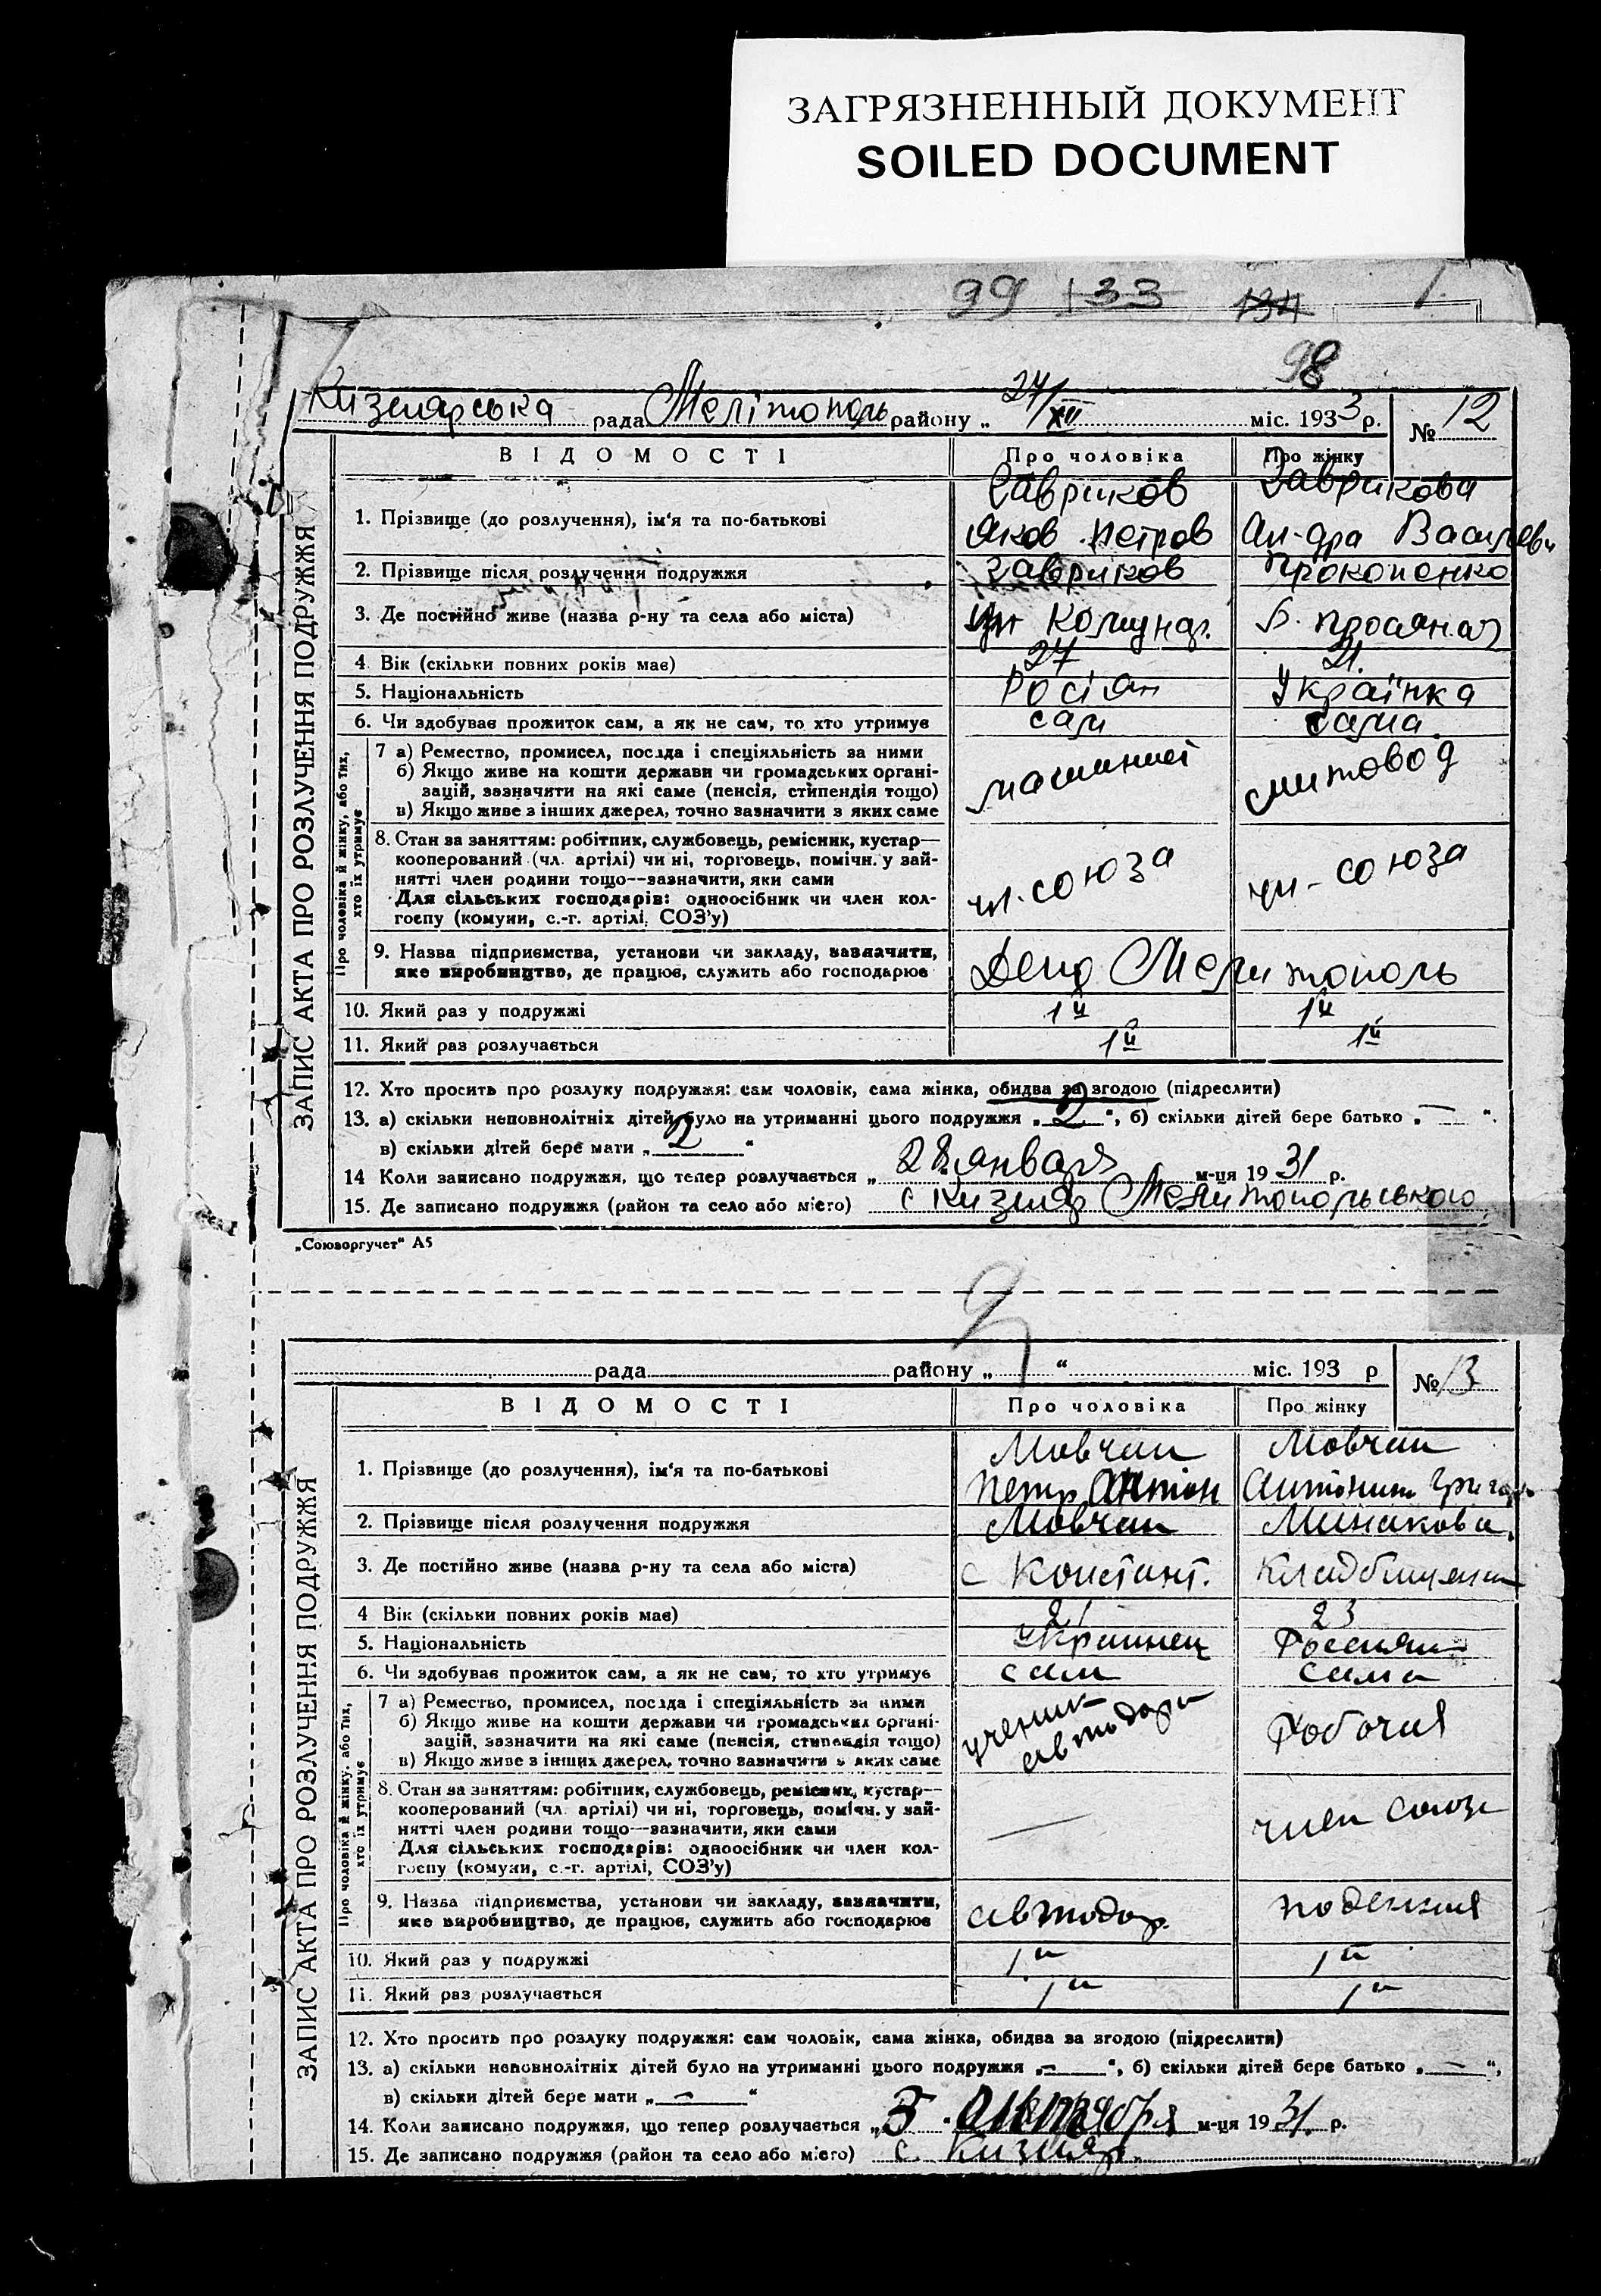 ЗАГРЯЗНЕННЫЙ ДОКУМЕНТ
SOILED DOCUMENT
99 133 134 1
98
Кизлярська рада Мелітополь району „ 27/XII міс. 1933 р. № 12
ЗАПИС АКТА ПРО РОЗЛУЧЕННЯ ПОДРУЖЖЯ
ВІДОМОСТІ Про чоловіка Про жінку
1. Прізвище (до розлучення), ім'я та по-батькові Гавриков Гаврикова
Яков Петров Ал-дра Васильевн
2. Прізвище після розлучення подружжя Гавриков Прокопенко
3. Де постійно живе (назва р-ну та села або міста) Комунар.
4 Вік (скільки повних років має) 27 21.
5. Національність Росіян Українка
6. Чи здобуває прожиток сам, а як не сам, то хто утримує сам сама
Про чоловіка й жінку, або тих,
хто їх утримує
7 а) Ремество, промисел, посада і спеціяльність за ними
б) Якщо живе на кошти держави чи громадських органі-
зацій, зазначити на які саме (пенсія, стипендія тощо)
в) Якщо живе з інших джерел, точно зазначити з яких саме
8. Стан за заняттям: робітник, службовець, ремісник, кустар—
кооперований (чл. артілі) чи ні, торговець, помічн. у зай-
нятті член родини тощо—зазначити, яки сами чл. союза чл-союза
Для сільських господарів: одноосібник чи член кол-
госпу (комуни, с.-г. артілі, СОЗ'у)
9. Назва підприємства, установи чи закладу, зазначити,
яке виробництво, де працює, служить або господарює Депо Мелитополь
10. Який раз у подружжі 1й 1й
11. Який раз розлучається 1й 1й
12. Хто просить про розлуку подружжя: сам чоловік, сама жінка, обидва за згодою (підреслити)
13. а) скільки неповнолітніх дітей було на утриманні цього подружжя „ 2 “, б) скільки дітей бере батько „ — “.
в) скільки дітей бере мати „ 2 “
14 Коли записано подружжя, що тепер розлучається „ 28 января м-ця 1931 р.
15. Де записано подружжя (район та село або місто) с Кизляр Мелитопольського
„Союзоргучет“ А5
рада району „ “ міс. 193 р № 13
ЗАПИС АКТА ПРО РОЗЛУЧЕННЯ ПОДРУЖЖЯ
ВІДОМОСТІ Про чоловіка Про жінку
1. Прізвище (до розлучення), ім'я та по-батькові Мовчан Мовчан
Петр Антон Антонина Григор
2. Прізвище після розлучення подружжя Мовчан Минакова
3. Де постійно живе (назва р-ну та села або міста) с Констант.
4 Вік (скільки повних років має) 21 23
5. Національність Украинец Россиян
6. Чи здобуває прожиток сам, а як не сам, то хто утримує сам сама
Про чоловіка й жінку, або тих,
хто їх утримує
7 а) Ремество, промисел, посада і спеціяльність за ними ученик
б) Якщо живе на кошти держави чи громадських органі- автодора Робочая
зацій, зазначити на які саме (пенсія, стипендія тощо)
в) Якщо живе з інших джерел, точно зазначити з яких саме
8. Стан за заняттям: робітник, службовець, ремісник, кустар—
кооперований (чл. артілі) чи ні, торговець, помічн. у зай- — член союза
нятті член родини тощо—зазначити, яки сами
Для сільських господарів: одноосібник чи член кол-
госпу (комуни, с.-г. артілі, СОЗ'у)
9. Назва підприємства, установи чи закладу, зазначити,
яке виробництво, де працює, служить або господарює автодор. поденная
10. Який раз у подружжі 1й 1й
11. Який раз розлучається 1й 1й
12. Хто просить про розлуку подружжя: сам чоловік, сама жінка, обидва за згодою (підреслити)
13. а) скільки неповнолітніх дітей було на утриманні цього подружжя „ — “, б) скільки дітей бере батько „ — “,
в) скільки дітей бере мати „ — “
14. Коли записано подружжя, що тепер розлучається „ 5 октября м-ця 1931. р.
15. Де записано подружжя (район та село або місто) с. Кизляр.